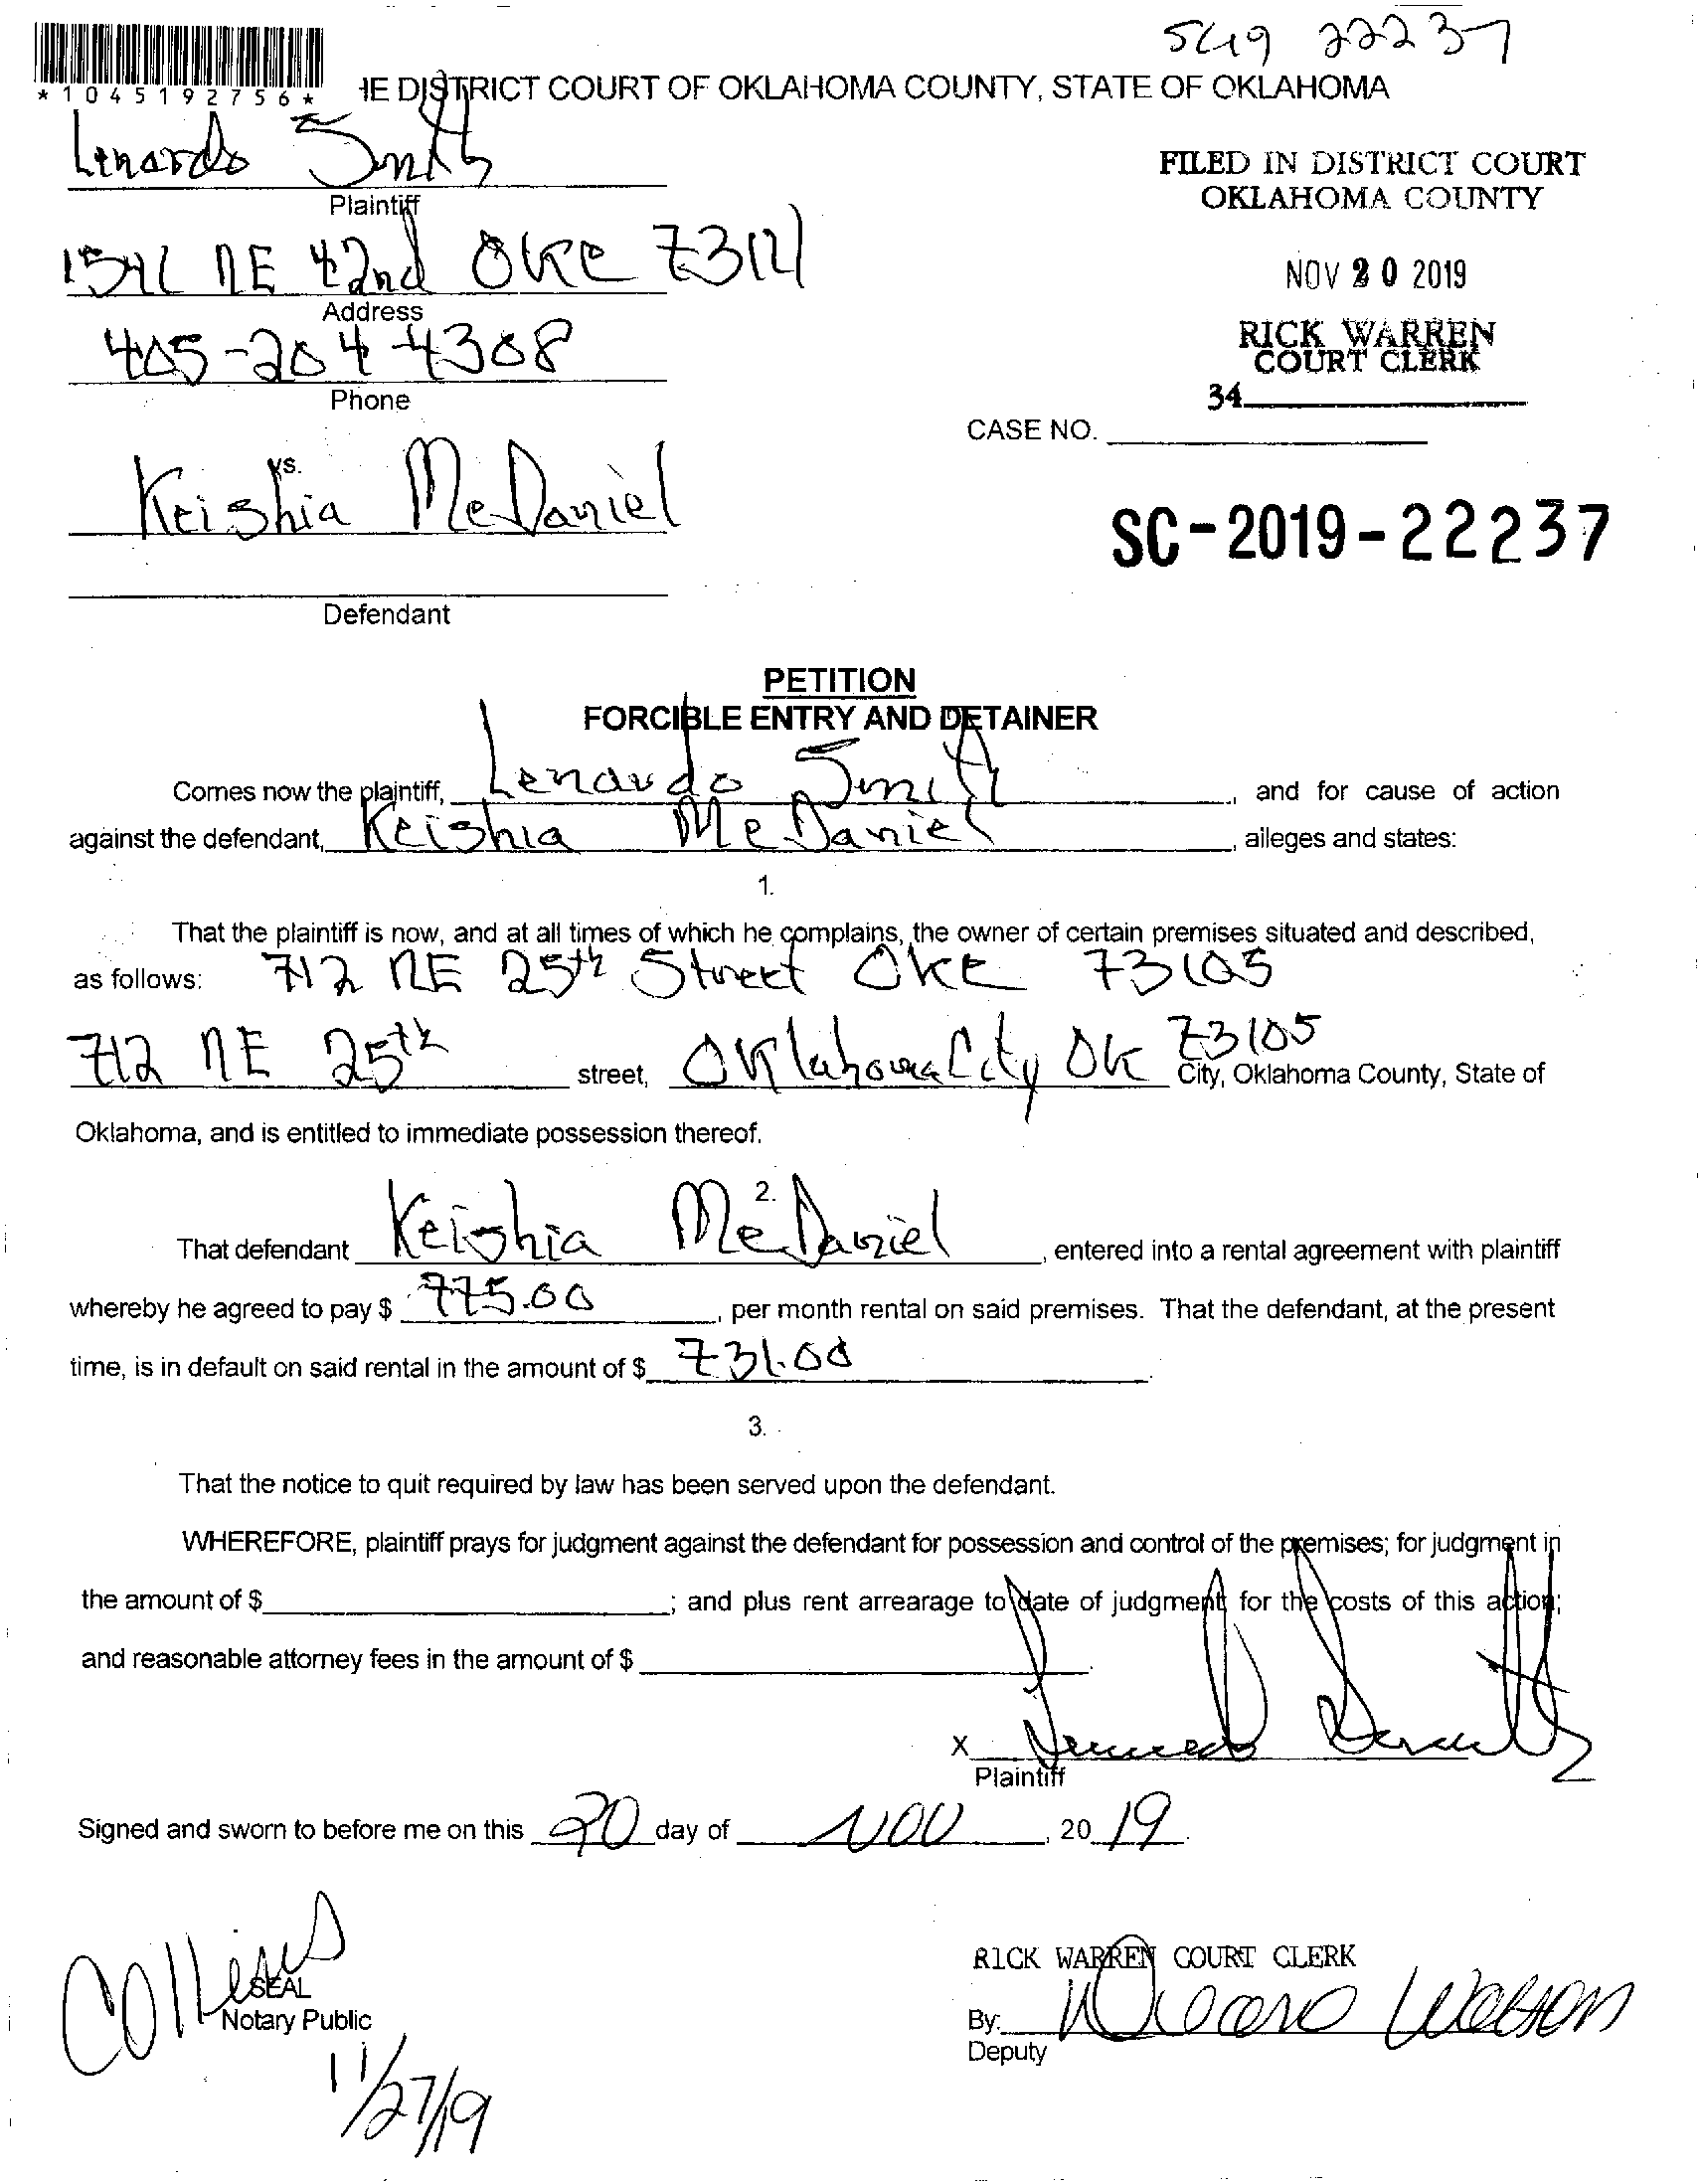 22237
*1045192756*
HE DISTRICT COURT OF OKLAHOMA COUNTY, STATE OF OKLAHOMA
Lenardo Smith
Plaintiff
FILED IN DISTRICT COURT
OKLAHOMA COUNTY
NE 42nd OKC
Address
NOV 20 2019
405-204-4308
Phone
RICK WARREN
COURT CLERK
34
CASE NO.
vs.
Keishia McDaniel
SC-2019-22237
Defendant
PETITION
FORCIBLE ENTRY AND DETAINER
Comes now the plaintiff, Lenardo Smith, and for cause of action
against the defendant, Keishia McDaniel, alleges and states:
1.
That the plaintiff is now, and at all times of which he complains, the owner of certain premises situated and described,
as follows: 712 NE 25th Street OKC 73105
712 NE 25th street, Oklahoma City OK 73105 City, Oklahoma County, State of
Oklahoma, and is entitled to immediate possession thereof.
2.
That defendant Keishia McDaniel, entered into a rental agreement with plaintiff
whereby he agreed to pay $ 775.00, per month rental on said premises. That the defendant, at the present
time, is in default on said rental in the amount of $ 731.00.
3.
That the notice to quit required by law has been served upon the defendant.
WHEREFORE, plaintiff prays for judgment against the defendant for possession and control of the premises; for judgment in
the amount of $ ; and plus rent arrearage to date of judgment for the costs of this action;
and reasonable attorney fees in the amount of $ .
X Lenardo Smith
Plaintiff
Signed and sworn to before me on this 20 day of NOV, 20 19.
Collins
SEAL
Notary Public
11/27/19
RICK WARREN COURT CLERK
By: Watson
Deputy